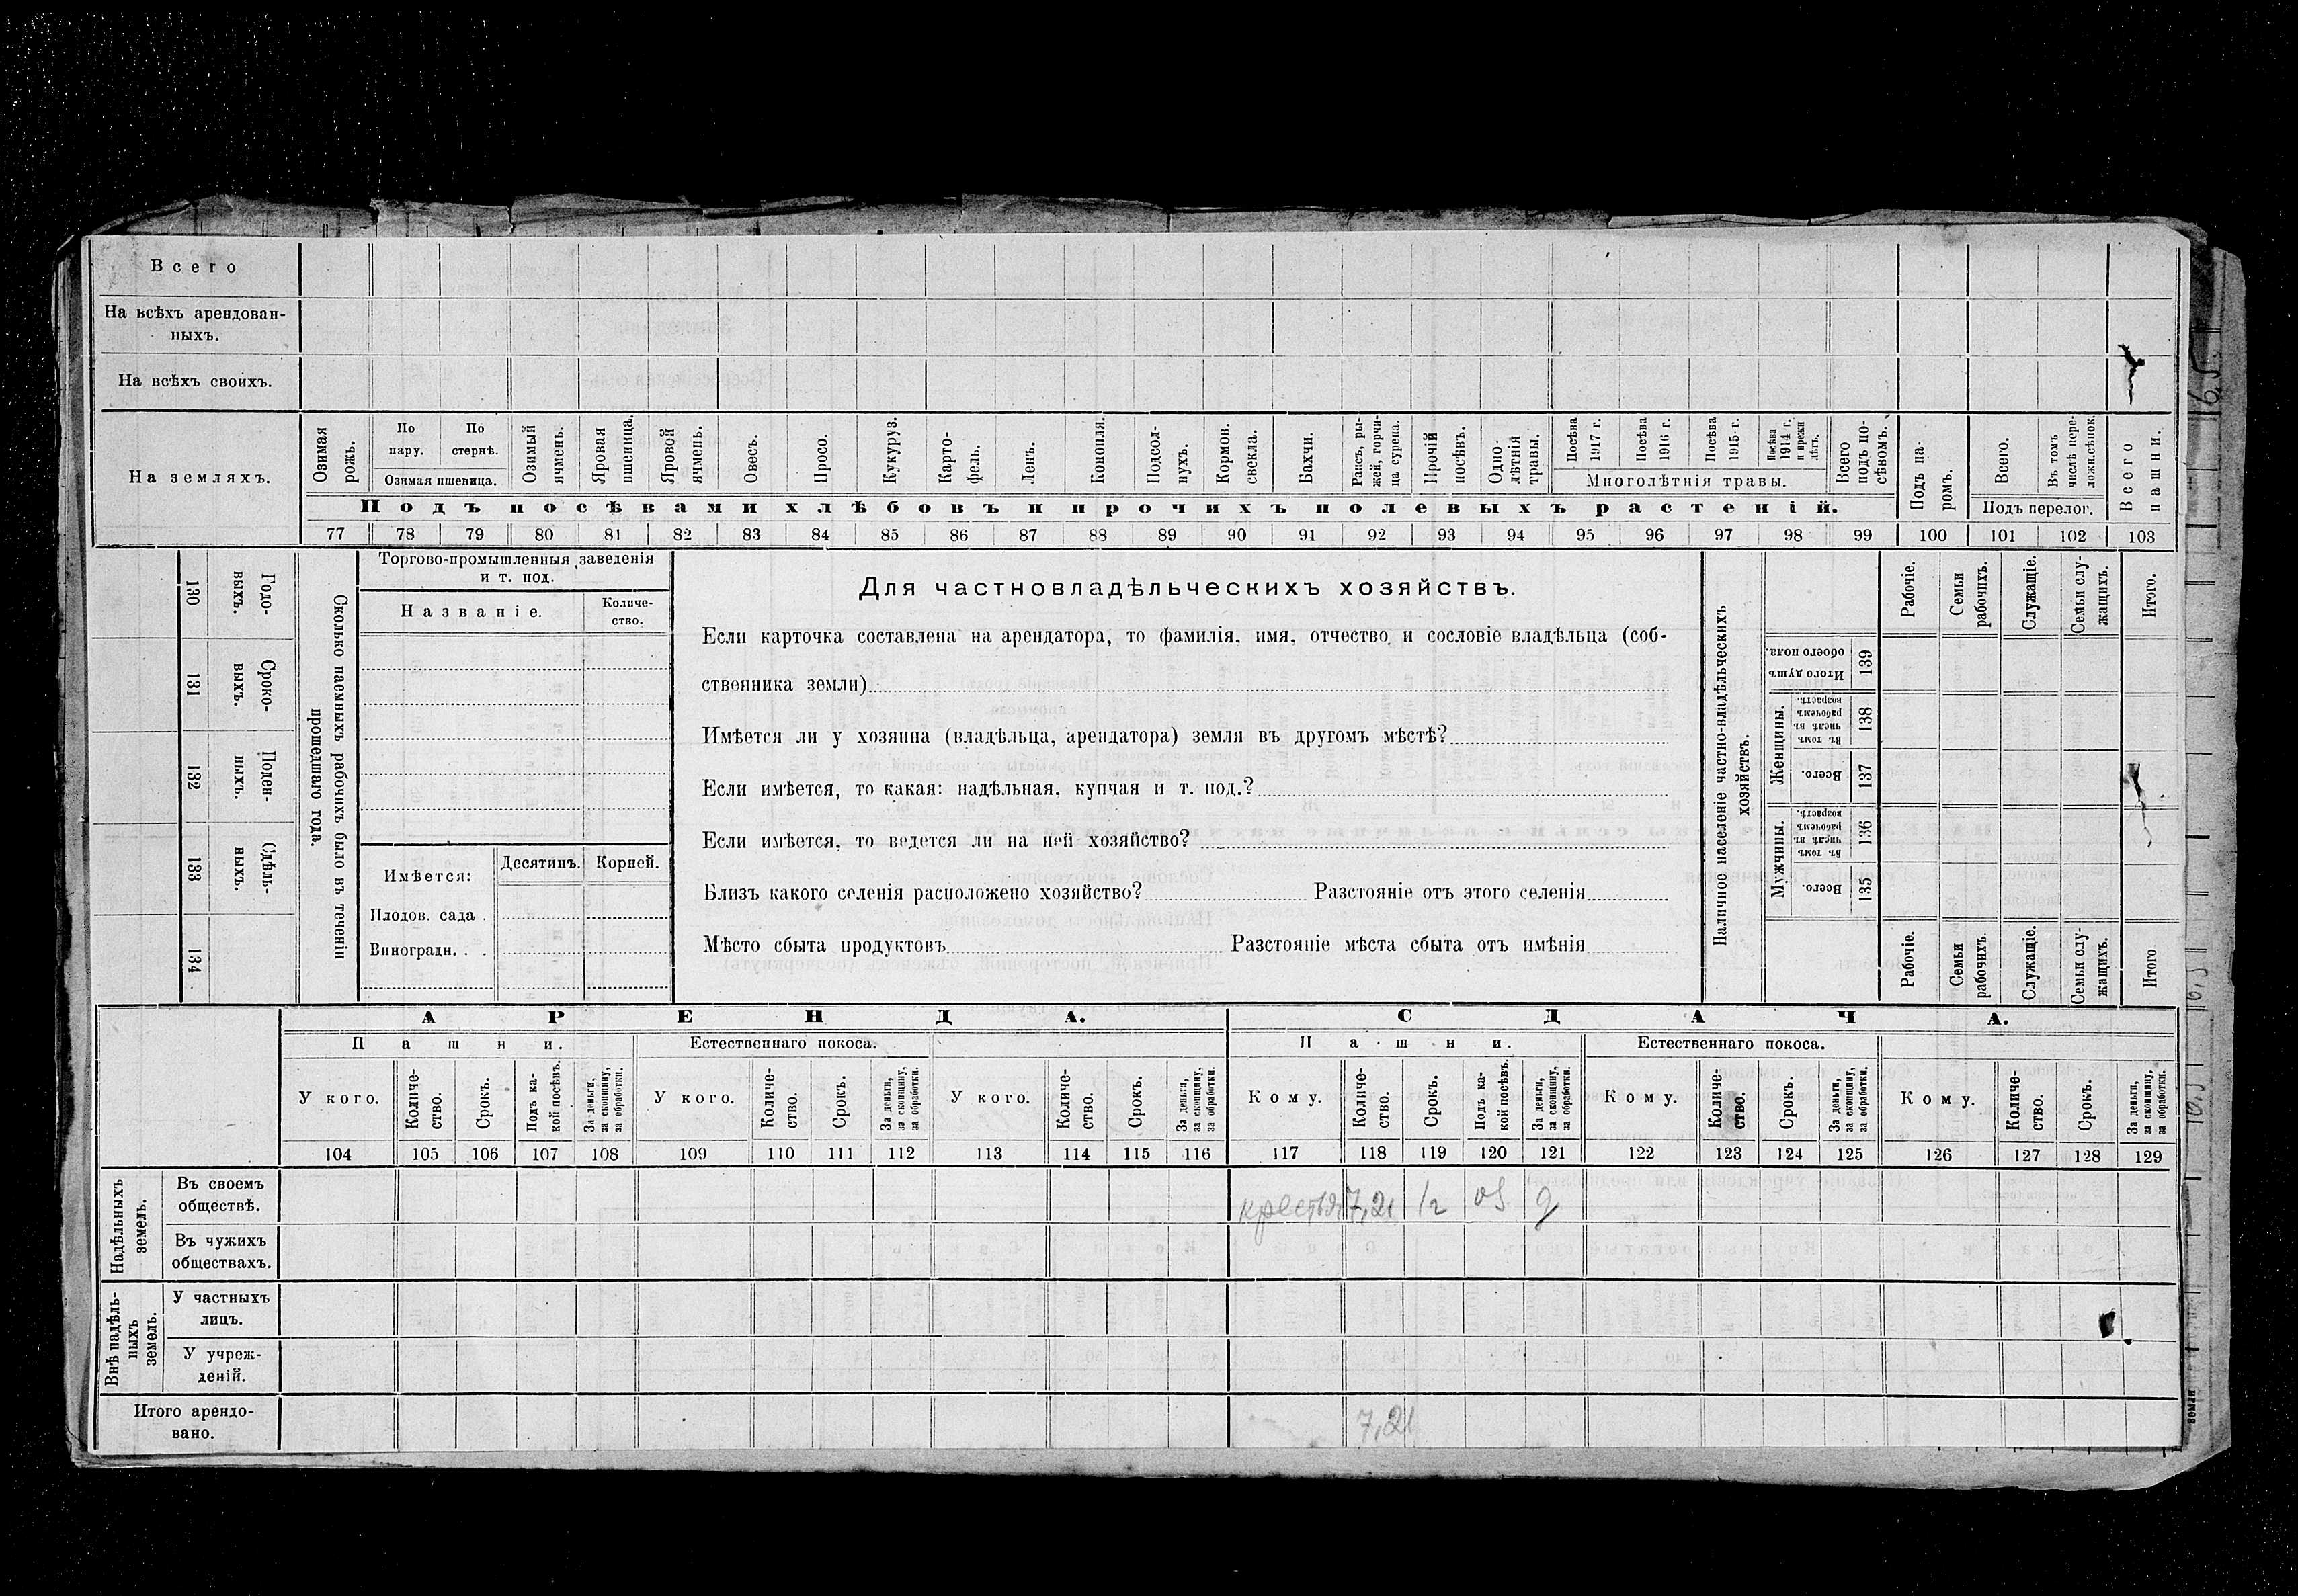 Всего
На всѣхъ арендован-
ныхъ.
На всѣхъ своихъ.
На земляхъ.
Озимая рожь.
По пару.
По стернѣ.
Озимая пшеница.
Озимый ячмень.
Яровая пшеница.
Яровой ячмень.
Овесъ.
Просо.
Кукуруз.
Карто-
фель.
Ленъ.
Конопля.
Подсол-
нухъ.
Кормов. свекла.
Бахчи.
Рапсъ, ры-
жей, горчи-
ца сурепа.
Прочій посѣвъ.
Одно-
лѣтнія травы.
Посѣва 1917 г.
Посѣва 1916 г.
Посѣва 1915 г.
Посѣва 1914 г. и прежн лѣтъ.
Многолѣтнія травы.
Всего подъ по-
сѣвомъ.
Подъ па-
ромъ.
Всего.
Въ томъ числѣ пере-
ложн.сѣнок.
Подъ перелог.
Всего пашни.
Подъ посѣвами хлѣбовъ и прочихъ полевыхъ растеній.
77 78 79 80 81 82 83 84 85 86 87 88 89 90 91 92 93 94 95 96 97 98 99 100 101 102 103
Сколько наемныхъ рабочихъ было въ теченіи
прошедшаго года.
130 Годо-
выхъ.
131 Сроко-
выхъ.
132 Поден-
ныхъ.
133 Сдѣль-
ныхъ.
134
Торгово-промышленныя заведенія
и т. под.
Названіе.
Количе-
ство.
Имѣется:
Десятинъ.
Корней.
Плодов. сада .
Виноградн. . .
Для частновладѣльческихъ хозяйствъ.
Если карточка составлена на арендатора, то фамилія, имя, отчество и сословіе владѣльца (соб-
ственника земли)
Имѣется ли у хозяина (владѣльца, арендатора) земля въ другомъ мѣстѣ?
Если имѣется, то какая: надѣльная, купчая и т. под.?
Если имѣется, то ведется ли на ней хозяйство?
Близъ какого селенія расположено хозяйство? Разстояніе отъ этого селенія
Мѣсто сбыта продуктовъ Разстояніе мѣста сбыта отъ имѣнія
Наличное населеніе частно-владѣльческихъ
хозяйствъ.
Рабочіе.
Семьи рабочихъ.
Служащіе.
Семьи слу-
жащихъ.
Итого.
Итого душъ обоего пола.
139
Женщины.
Въ томъ числѣ въ рабочемъ возрастѣ.
138
Всего.
137
Мужчины.
Въ томъ числѣ въ рабочемъ возрастѣ.
136
Всего.
135
Рабочіе.
Семьи рабочихъ.
Служащіе.
Семьи слу-
жащихъ.
Итого
АРЕНДА.
СДАЧА.
Пашни.
Естественнаго покоса.
Пашни.
Естественнаго покоса.
У кого.
Количе-
ство.
Срокъ.
Подъ ка-
кой посѣвъ.
За деньги, за скопщину, за обработки.
У кого.
Количе-
ство.
Срокъ.
За деньги, за скопщину, за обработки.
У кого.
Количе-
ство.
Срокъ.
За деньги, за скопщину, за обработки.
Кому.
Количе-
ство.
Срокъ.
Подъ ка-
кой посѣвъ.
За деньги, за скопщину, за обработки.
Кому.
Количе-
ство.
Срокъ.
За деньги, за скопщину, за обработки.
Кому.
Количе-
ство.
Срокъ.
За деньги, за скопщину, за обработки.
104 105 106 107 108 109 110 111 112 113 114 115 116 117 118 119 120 121 122 123 124 125 126 127 128 129
Надѣльныхъ
земель.
Въ своемъ
обществѣ.
7,21
Въ чужихъ
обществахъ.
Внѣ надѣль-
ныхъ
земель.
У частныхъ
лицъ.
У учреж-
деній.
Итого арендо-
вано.
7,21
земли